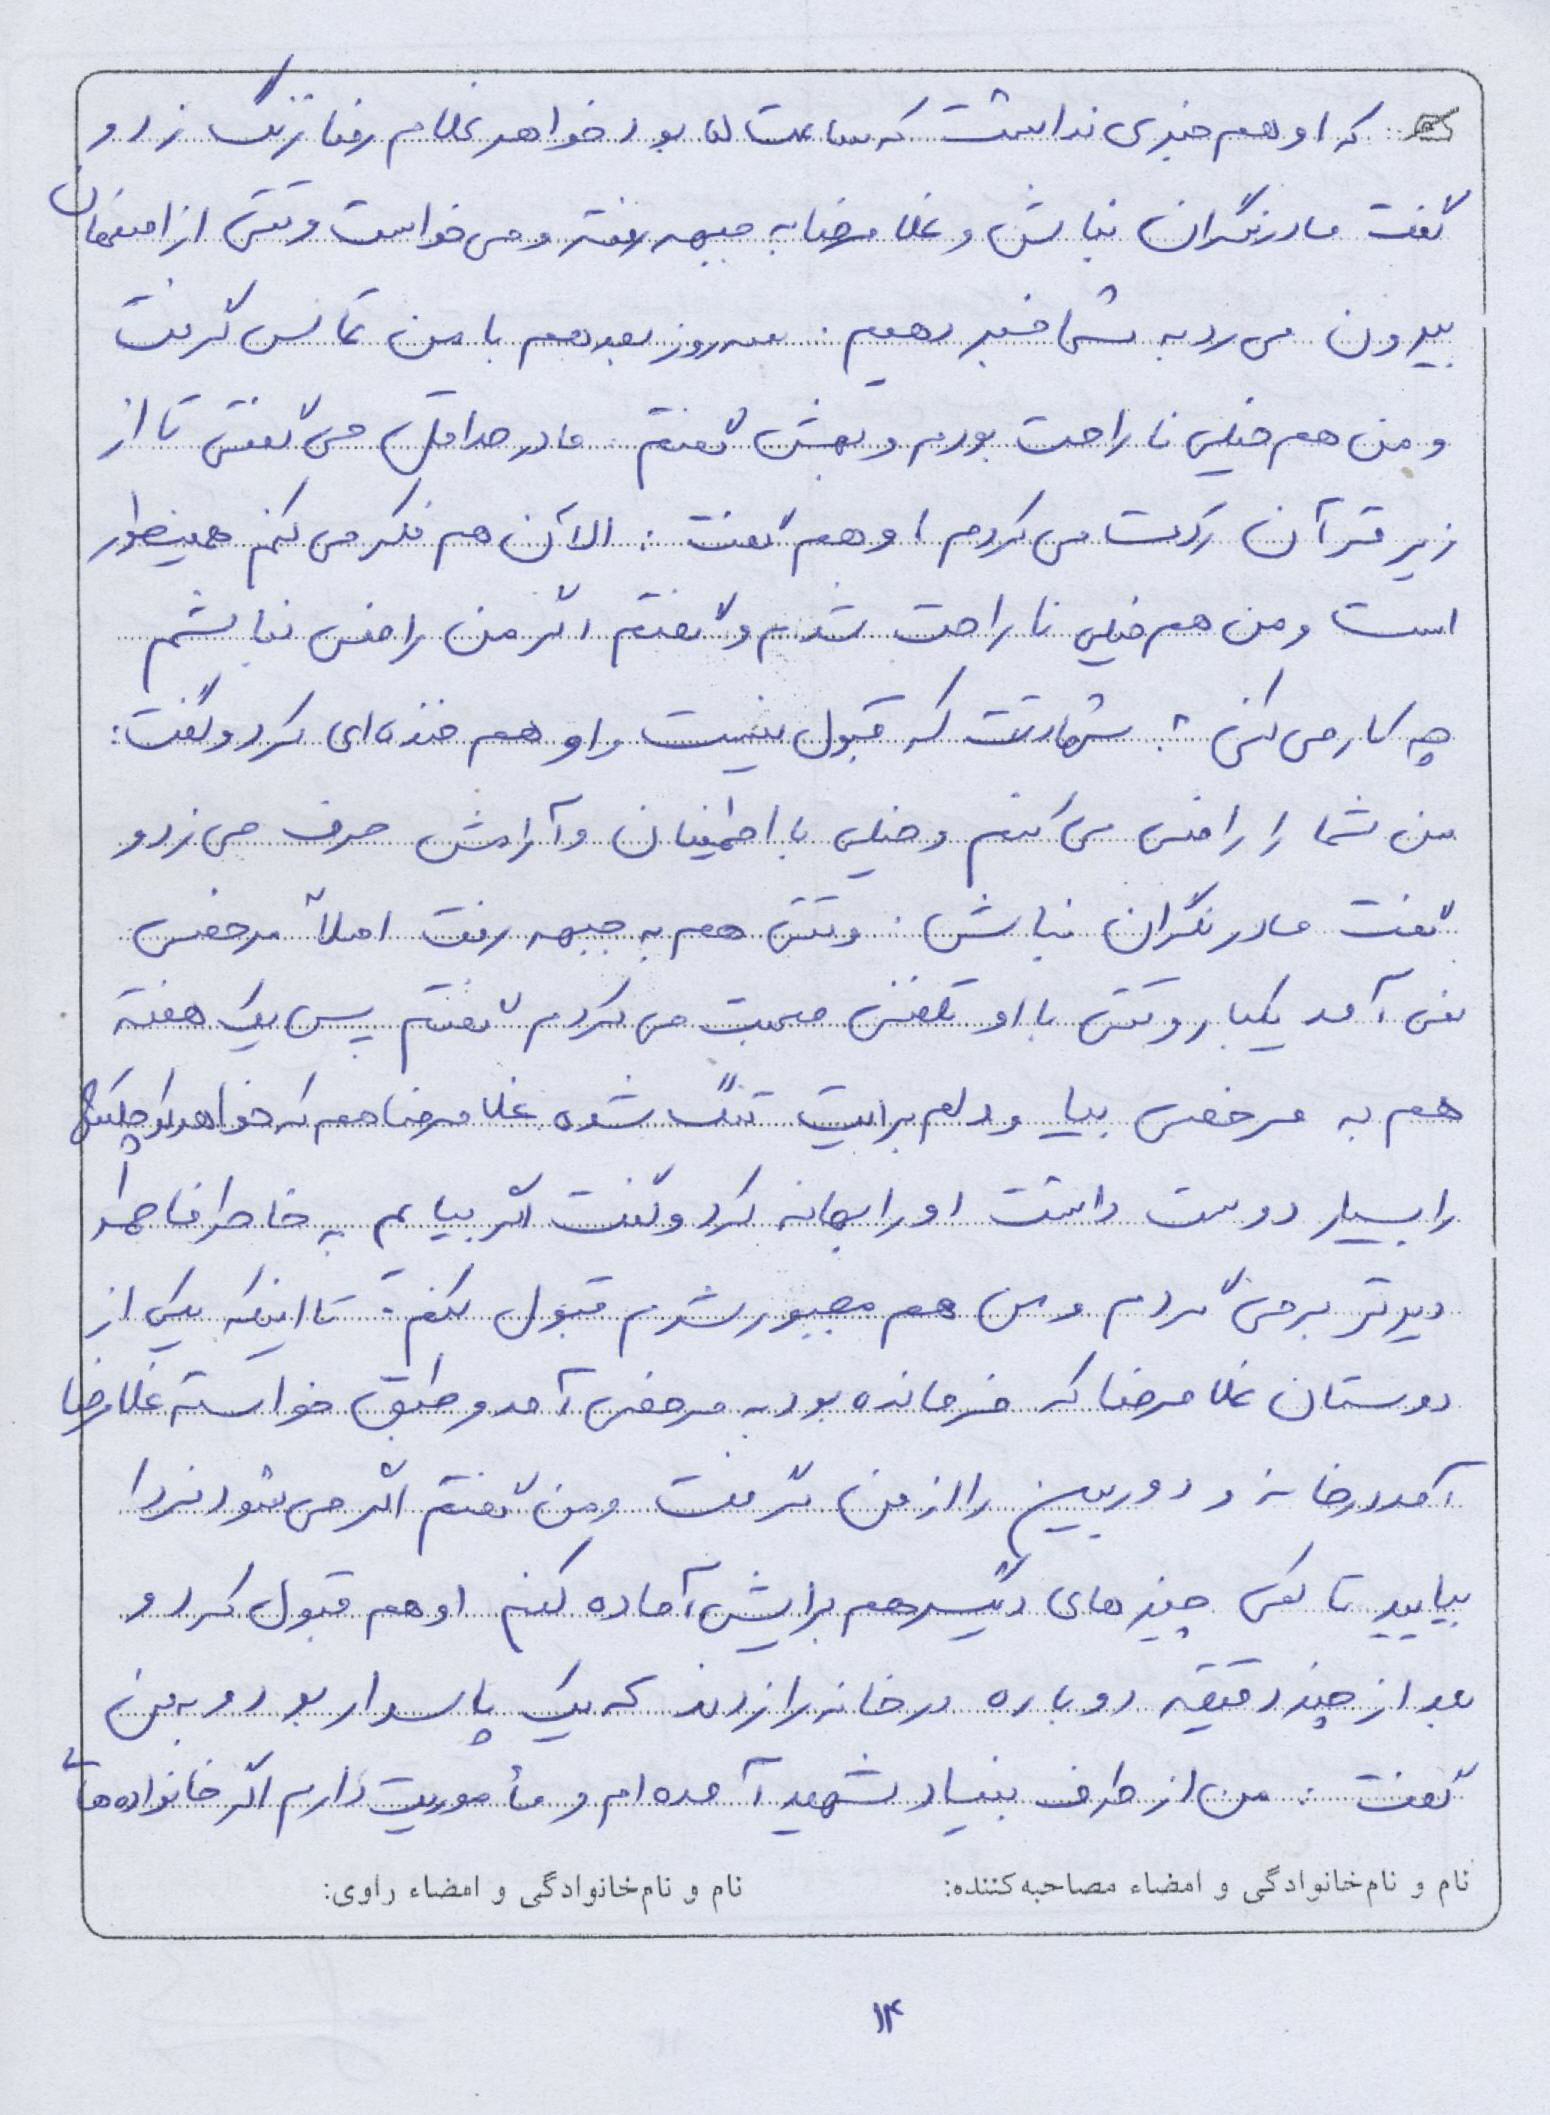 که او هم خبری نداشت که ساعت ۱۵ بود خواهر غلام رضا زنگ زد و
گفت مادر نگران نباش و غلامرضا به جبهه رفته و می خواست وقتی از اصفهان
بیرون می رد به شما خبر دهیم . سه روز بعد هم با من تماس گرفت
و من هم خیلی ناراحت بودم و بهش گفتم . مادر حداقل می گفتی تا از
زیر قرآن ردت می کردم ، او هم گفت : الآن هم فکر می کنم همینطور
است و من هم خیلی ناراحت شدم و گفتم اگر من راضی نباشم
چه کار می کنی ؟ . شهادتت که قبول نیست و او هم خنده ای کرد و گفت :
من شما را راضی می کنم و خیلی با اطمینان و آرامش حرف می زد و
گفت مادر نگران نباش . وقتی هم به جبهه رفت اصلاً مرخصی
نمی آمد یکبار وقتی با او تلفنی صحبت می کردم گفتم پس یک هفته
هم به مرخصی بیا و دلم برایت تنگ شده غلامرضا هم که خواهر کوچکش
را بسیار دوست داشت او را بهانه کرد و گفت اگر بیایم به خاطر فاطمه
دیرتر برمی گردم و من هم مجبور شدم قبول کنم . تا اینکه یکی از
دوستان غلامرضا که فرمانده بود به مرخصی آمد و طبق خواسته غلامرضا
آمد در خانه و دوربین را از من گرفت و من گفتم اگر می شود فردا
بیایید تا یکی چیزهای دیگر هم برایش آماده کنم او هم قبول کرد و
بعد از چند دقیقه دوباره در خانه را زدند که یک پاسدار بود و به من
گفت : من از طرف بنیاد شهید آمده ام و مأموریت دارم اگر خانواده های
نام و نام‌خانوادگی و امضاء مصاحبه‌کننده: نام و نام‌خانوادگی و امضاء راوی:
۱۴